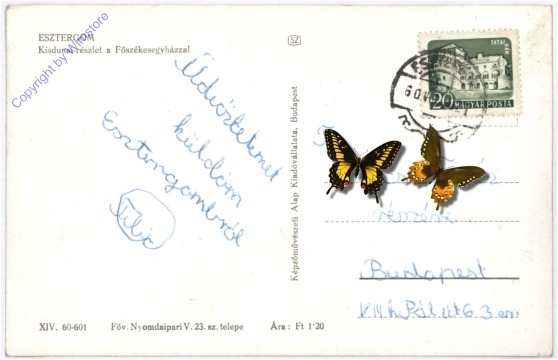 ESZTERGOM
Kisdunai részlet a Főszékesegyházzal
Copyright by Wnstore
SZ
TATAI VÁR
20 MAGYAR POSTA
Üdvözletemet
küldöm
Esztergomból
Képzőművészeti Alap Kiadóvállalata, Budapest
részére
Budapest
VIII k. Pál u 6. 3 em
XIV. 60-601 Főv. Nyomdaipari V. 23. sz. telepe Ára: Ft 1·20